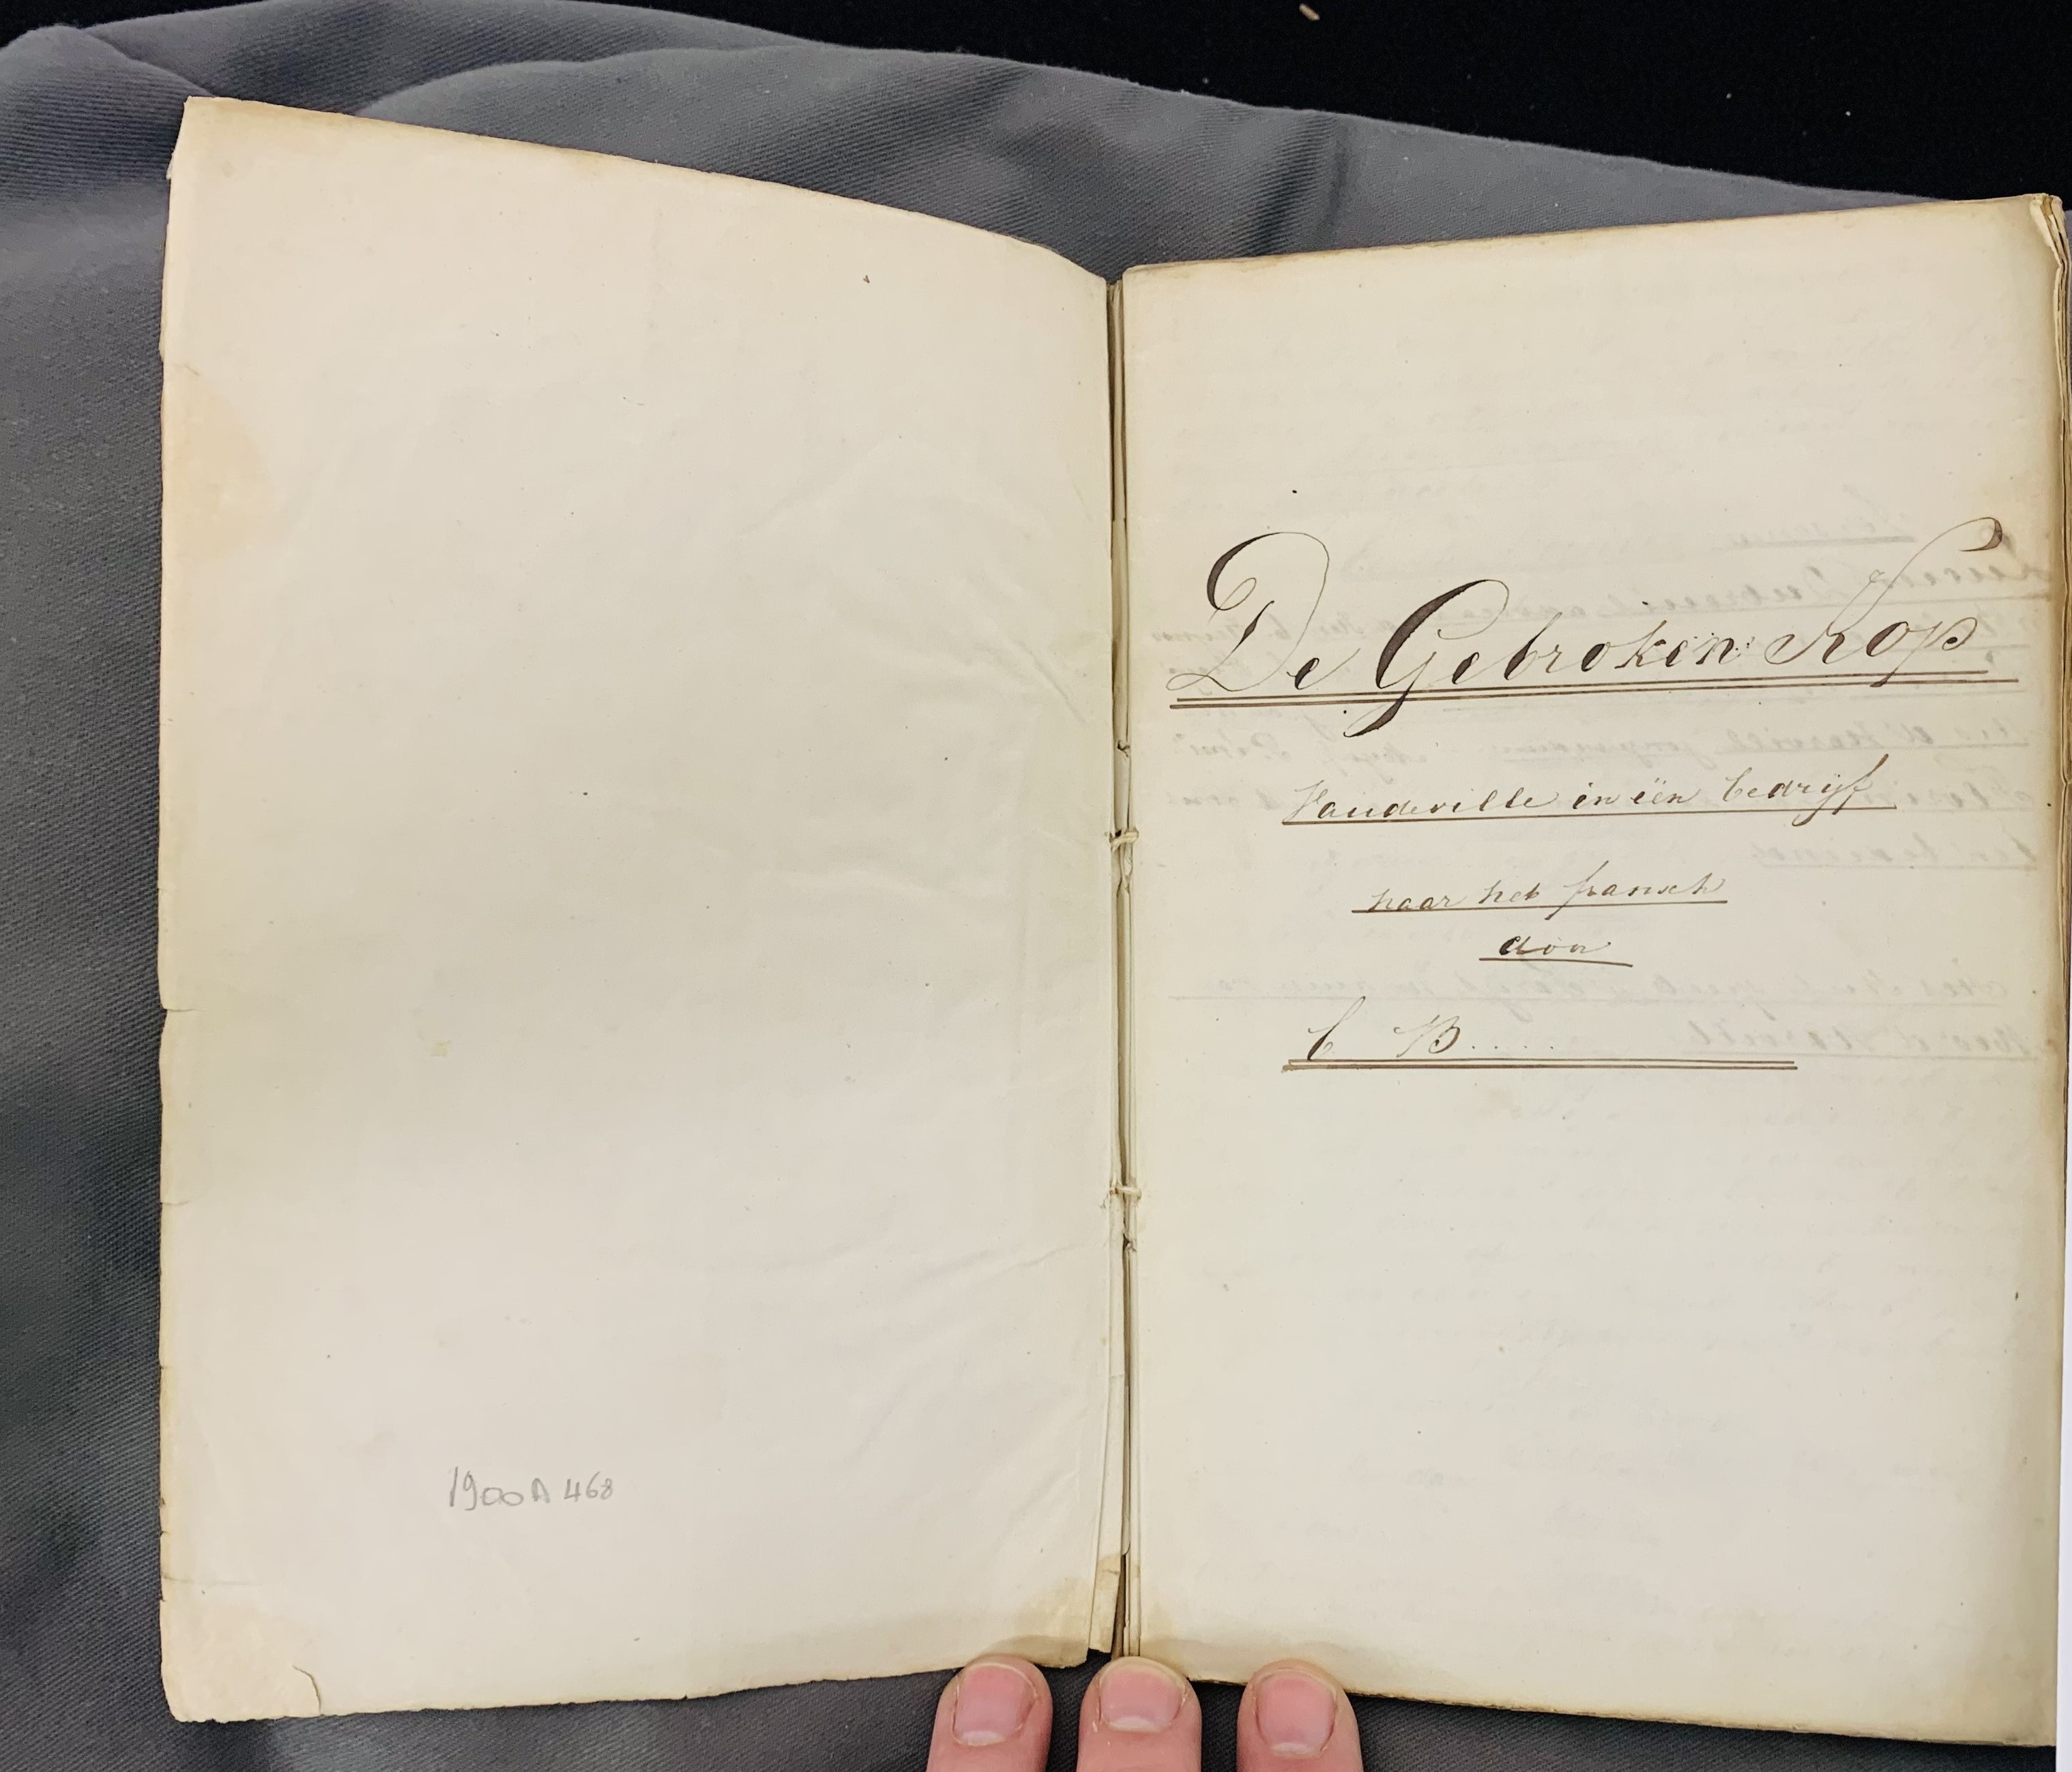 1900 A 468
De Gebroken Kop
Vaudeville in één bedrijf
naar het fransch
door
C B.....